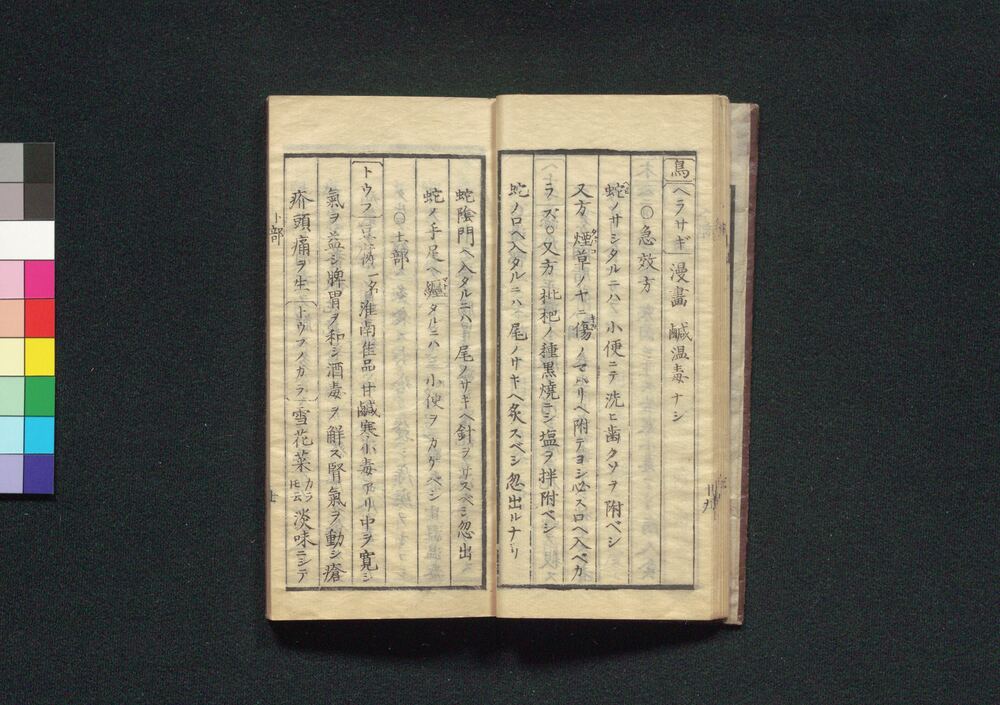 鳥 ヘラサギ 漫畵 鹹温毒ナシ
〇急效方
蛇ノサシタルニハ 小便ニテ洗ヒ歯クソヲ附ベシ
又方 煙草ノヤニ傷ノマハリヘ附テヨシ必ス口ヘ入ベカ
ラズ〇又方 枇杷ノ種黒焼ニシ塩ヲ拌附ベシ
蛇ノ口ヘ入タルニハ 尾ノサキヘ灸スベシ忽出ルナリ
蛇陰門ヘ入タルニハ 尾ノサキヘ針ヲサスベシ忽出ス
蛇ノ手足ヘ纏タルニハ 小便ヲカケベシ
〇ト部
トウフ 豆腐 一名 淮南佳品 甘鹹寒小毒アリ中ヲ寛シ
氣ヲ益シ脾胃ヲ和シ酒毒ヲ解ス腎氣ヲ動シ瘡
疥頭痛ヲ生 トウフノカラ 雪花菜 カラトモ云 淡味ニシテ
ト部